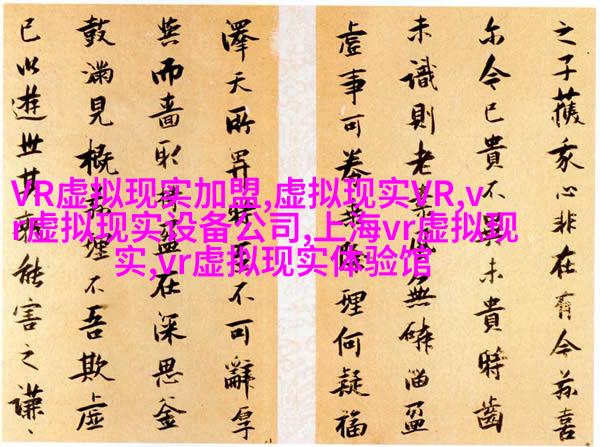 VR虚拟现实加盟,虚拟现实VR,v
r虚拟现实设备公司,上海vr虚拟现
实,vr虚拟现实体验馆
之子我心非在有令茲喜
尔令已貴不異未貴時齒
未識則老無隣盈
虛事可理何疑福
澤天所不可辭享
與而嗇取益在深思釜
鼓滿見概理不吾欺虛
已以遊世其孰能害之謙〻